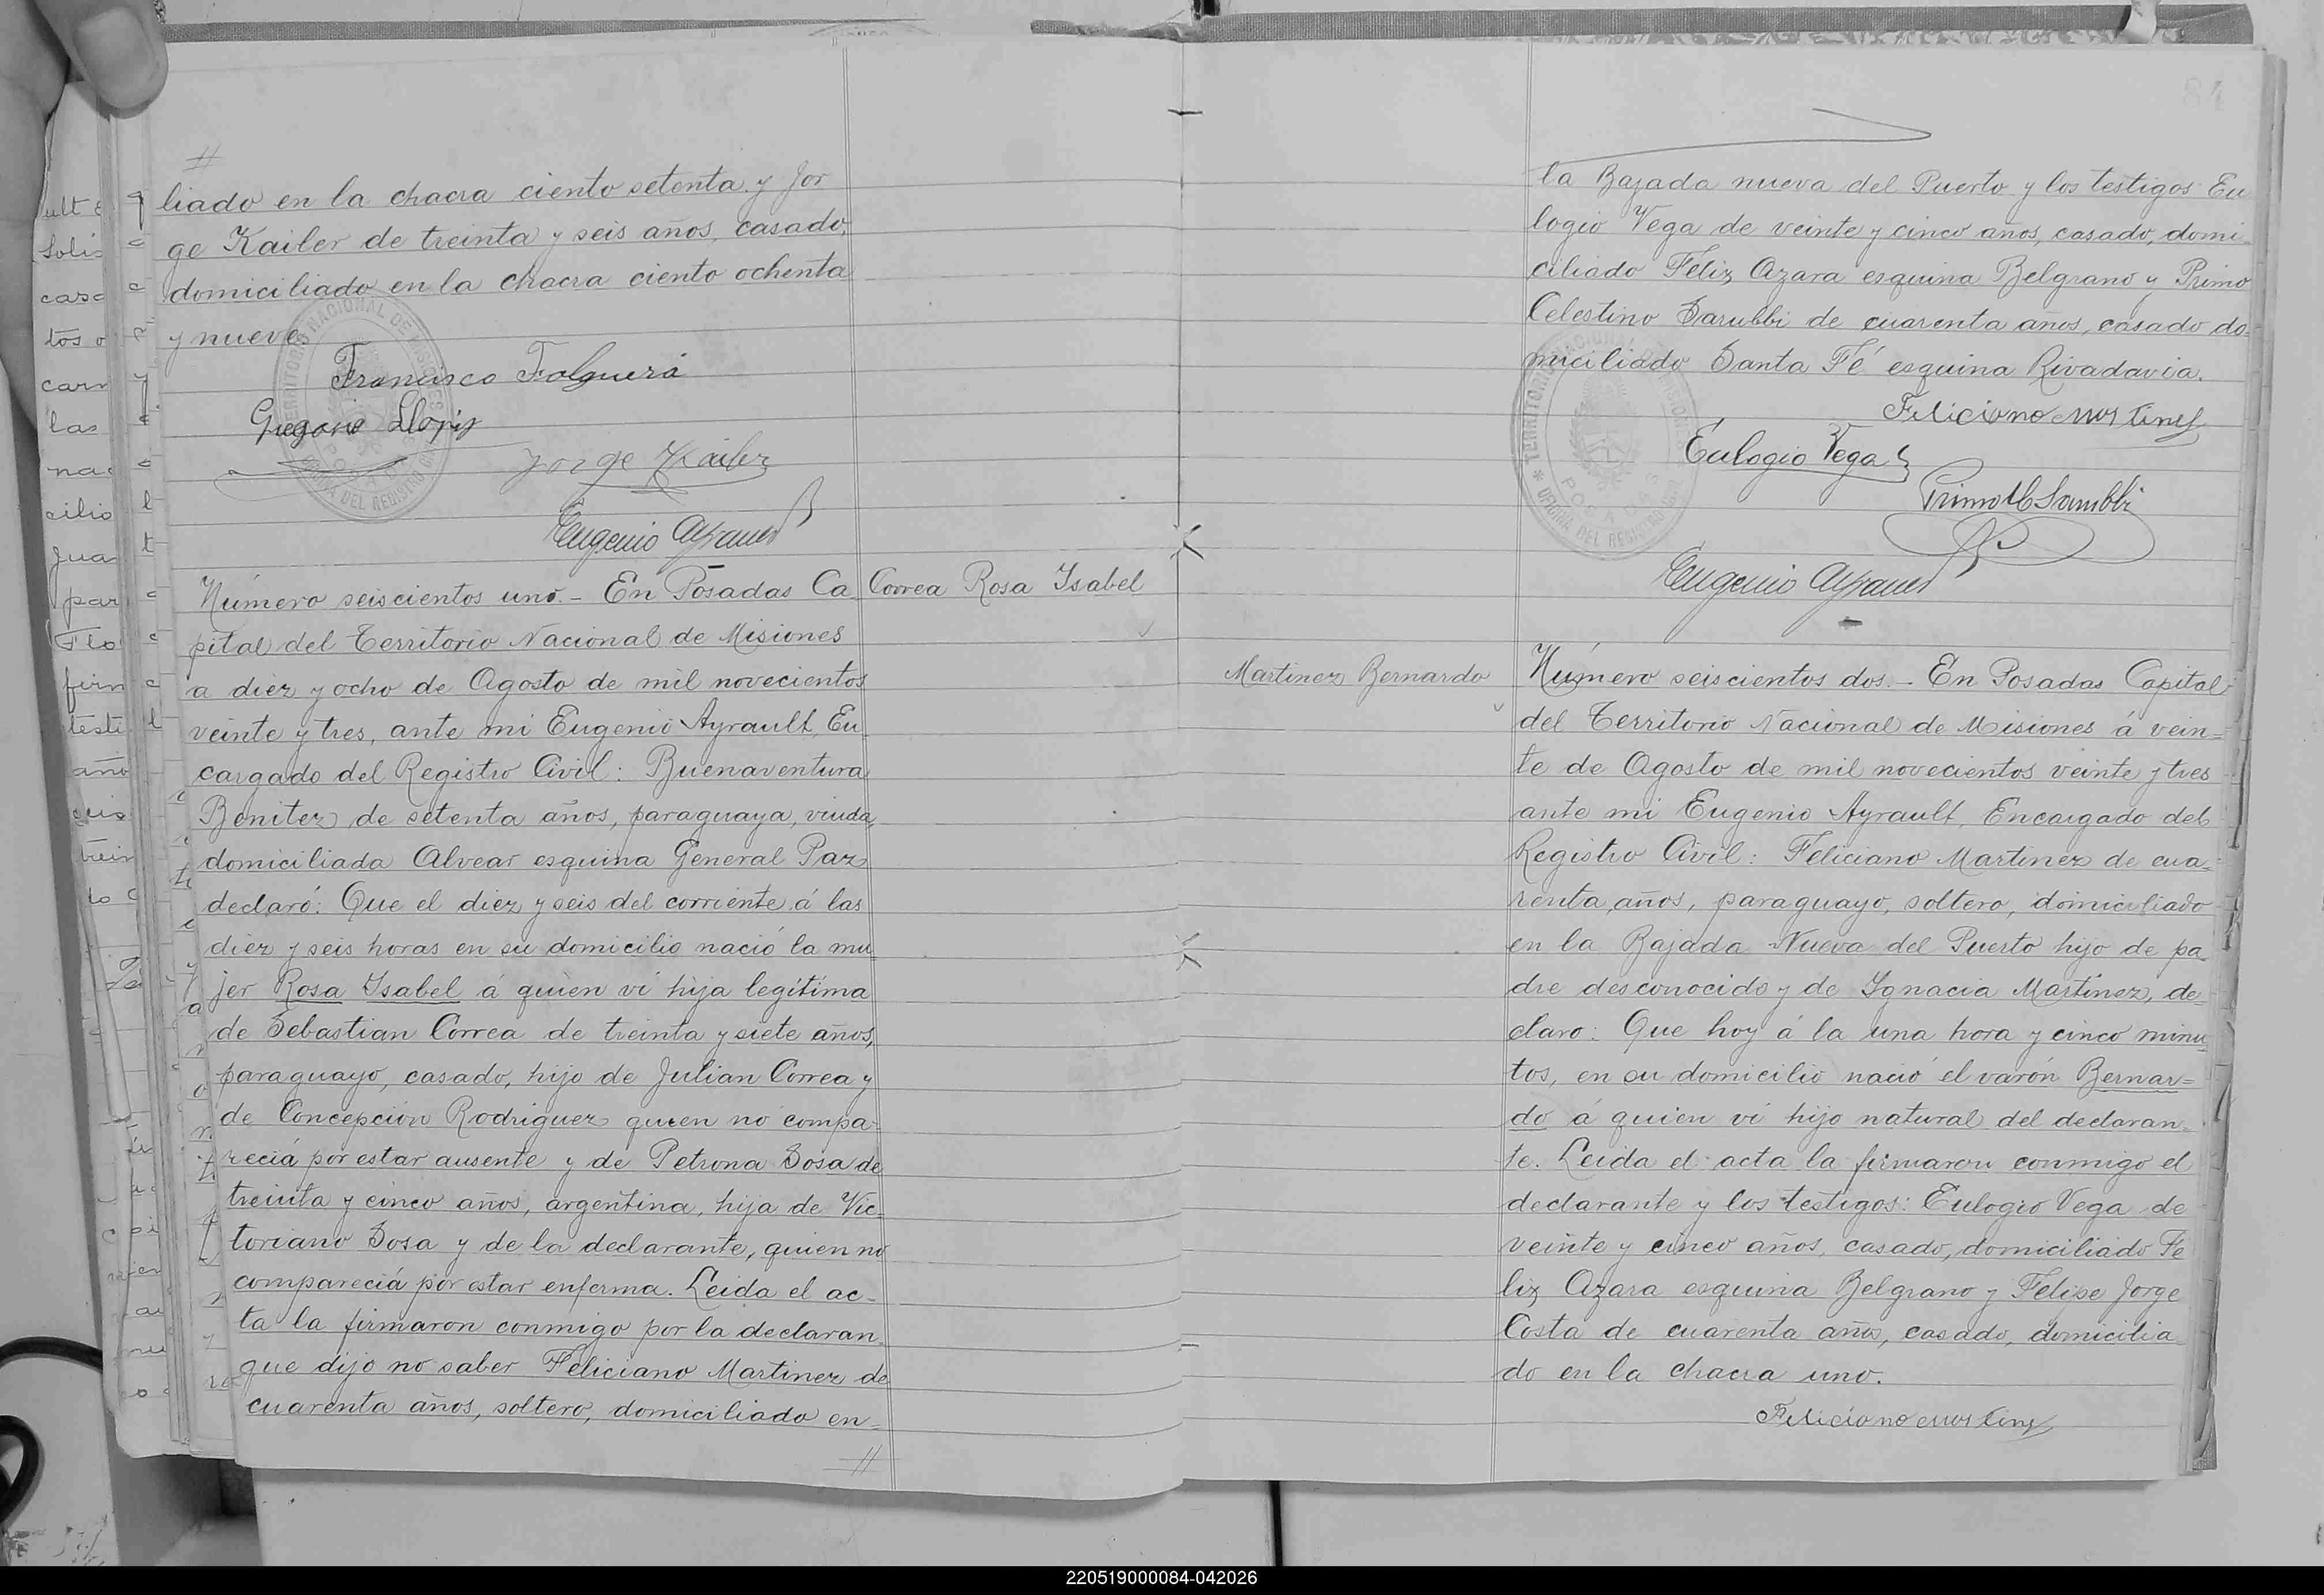 liado en la chacra ciento setenta y Jor
ge Kailer de treinta y seis años, casado,
domiciliado en la chacra ciento ochenta
y nueve
Francisco Folguera
Gregorio Llopis
Jorge Kailer
Eugenio Ayrault
Número seiscientos uno.- En Posadas Ca
Correa Rosa Isabel
pital del Territorio Nacional de Misiones
a diez y ocho de Agosto de mil novecientos
veinte y tres, ante mi Eugenio Ayrault, En
cargado del Registro Civil: Buenaventura
Benitez de setenta años, paraguaya, viuda,
domiciliada Alvear esquina General Paz
declaró: Que el diez y seis del corriente á las
diez y seis horas en su domicilio nació la mu
jer Rosa Isabel á quien vi hija legitima
de Sebastian Correa de treinta y siete años,
paraguayo, casado, hijo de Julian Correa y
de Concepción Rodriguez quien no compa-
reciá por estar ausente y de Petrona Sosa de
treinta y cinco años, argentina, hija de Vic-
toriano Sosa y de la declarante, quien no
compareciá por estar enferma. Leida el ac-
ta la firmaron conmigo por la declaran
que dijo no saber Feliciano Martinez de
cuarenta años, soltero, domiciliado en-
84
la Bajada nueva del Puerto y los testigos Eu
logio Vega de veinte y cinco años, casado, domi-
ciliado Féliz Azara esquina Belgrano y Primo
Celestino Sarubbi de cuarenta años, casado do-
miciliado Santa Fé esquina Rivadavia.
Feliciano Martines
Eulogio Vega
Primo C Sarubbi
Eugenio Ayrault
Martinez Bernardo
Número seiscientos dos.- En Posadas Capital
del Territorio Nacional de Misiones á vein=
te de Agosto de mil novecientos veinte y tres
ante mi Eugenio Ayrault, Encargado del
Registro Civil: Feliciano Martinez de cua-
renta años, paraguayo, soltero, domiciliado
en la Bajada Nueva del Puerto hijo de pa
dre desconocido y de Ignacia Martinez, de-
claro: Que hoy á la una hora y cinco minu
tos, en su domicilio nació el varón Bernar=
do á quien vi hijo natural del declaran-
te. Leida el acta la firmaron conmigo el
declarante y los testigos: Eulogio Vega de
veinte y cinco años, casado, domiciliado Fe
liz Azara esquina Belgrano y Felipe Jorge
Costa de cuarenta años, casado, domicilia
do en la chacra uno.
Feliciano Martines
220519000084-042026